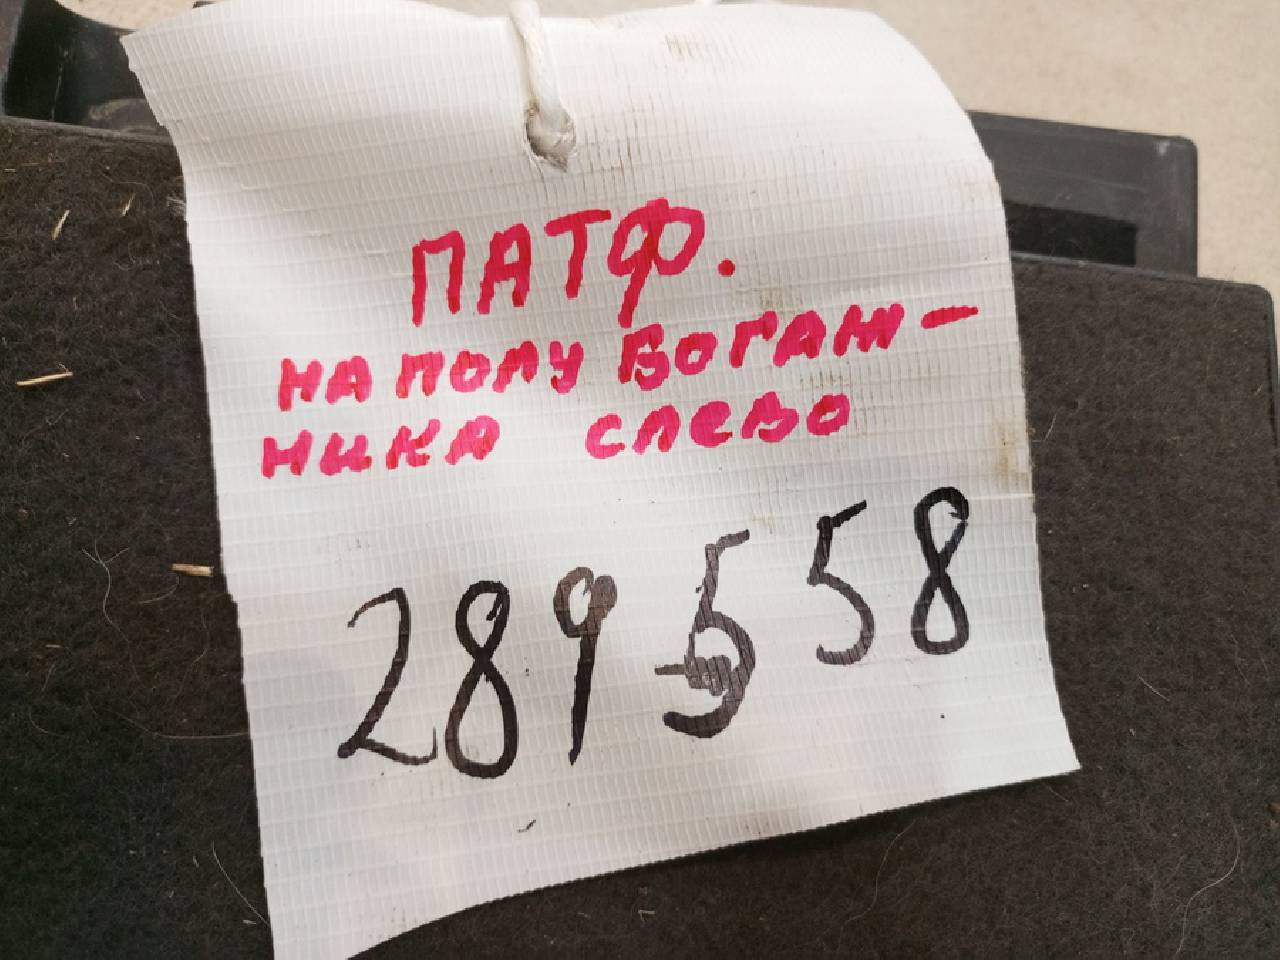 ПАТФ.
НА ПОЛУ БОГАЖ-
НИКА СЛЕВО
289558